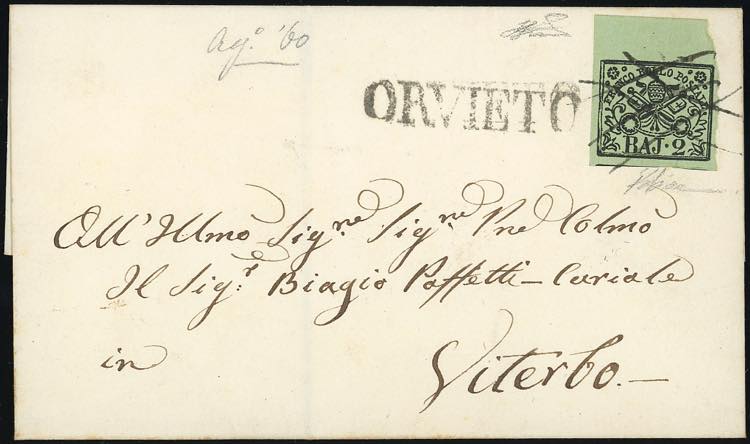 Ag.º '60
ORVIETO
FRANCO BOLLO POSTALE
BAJ. 2
All'Illmo Sig.ne Sig.ne Pne Colmo
Il Sig.r Biagio Paffetti - Curiale
in Viterbo. -